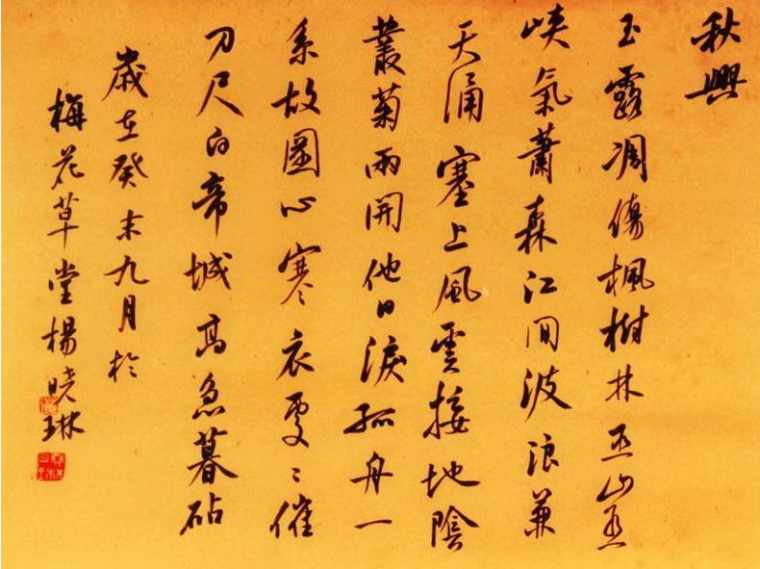 秋興
玉露凋傷楓樹林巫山巫
峽氣蕭森江间波浪兼
天涌塞上風雲接地陰
叢菊兩開他日淚孤舟一
系故園心寒衣處〻催
刀尺白帝城高急暮砧
歲在癸未九月於
梅花草堂楊曉琳